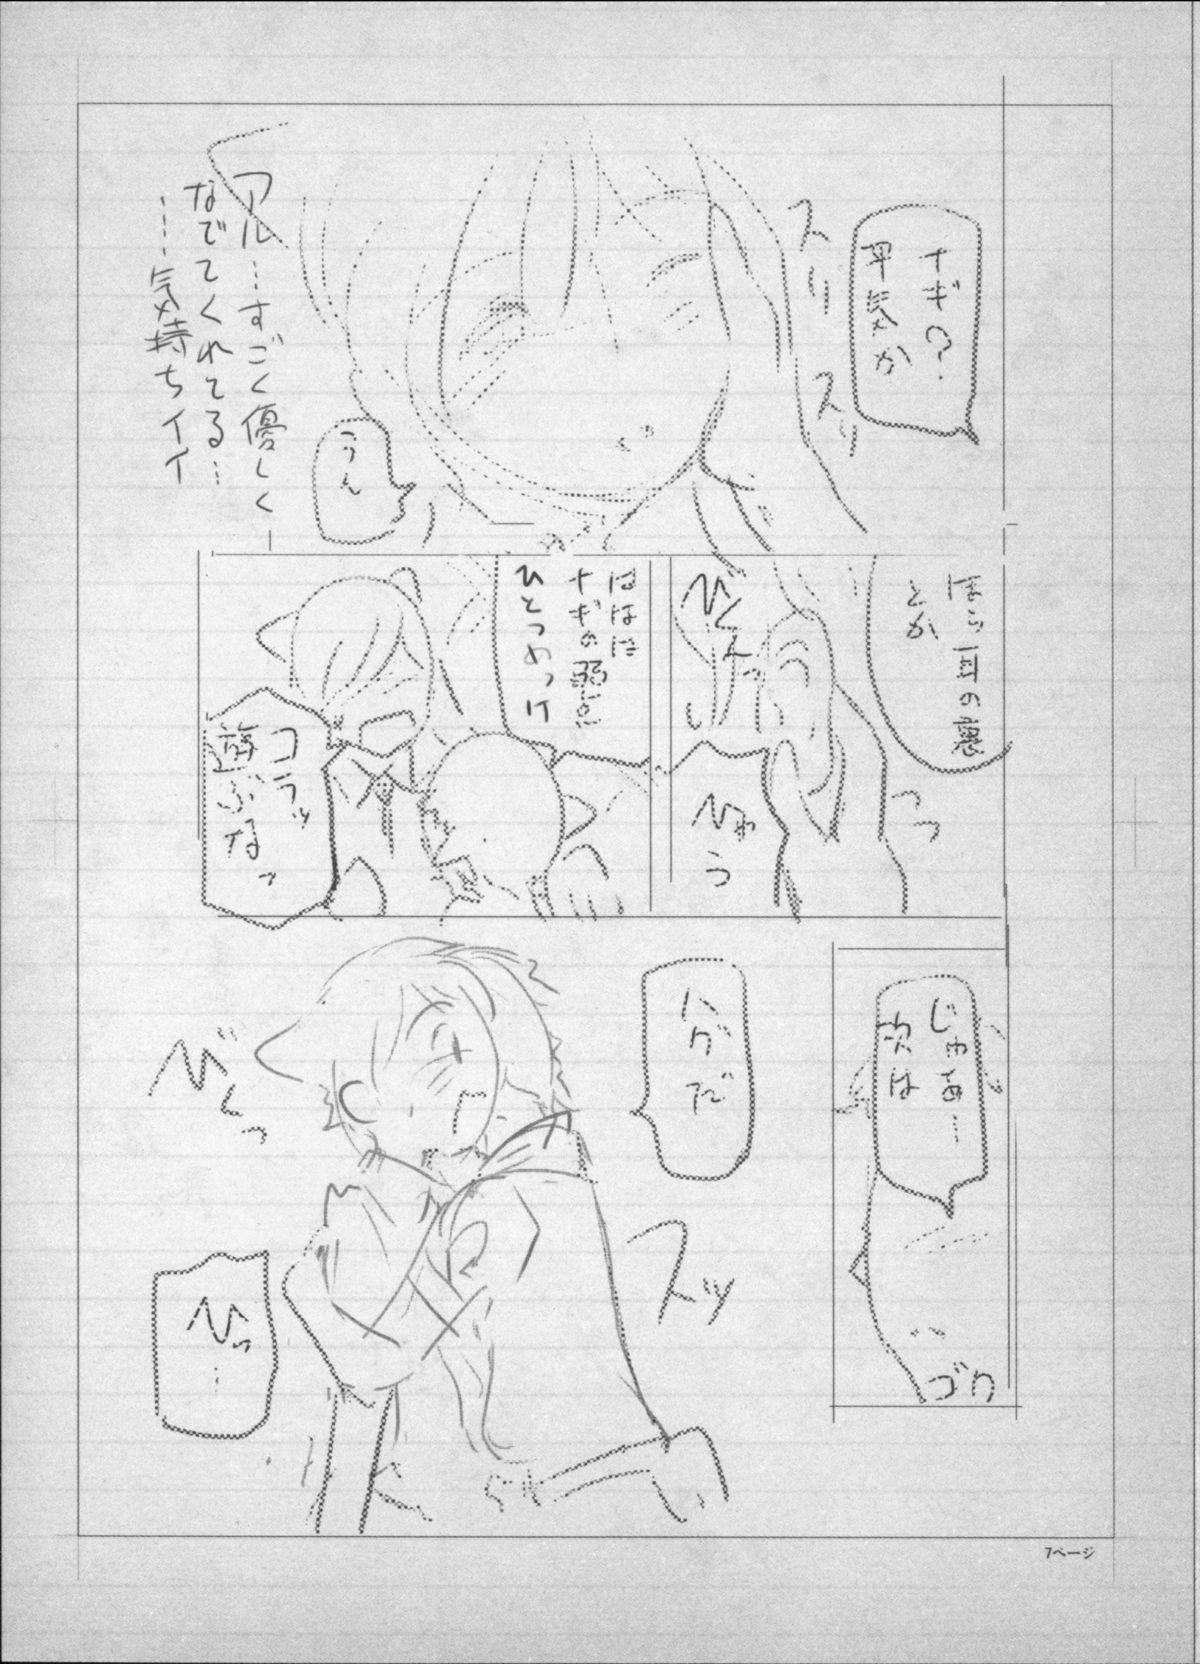 ナギ?
平気か
スリ
スリ
うん
アル…すごく優しく
なでてくれてる…
……気持ちイイ
ほら耳の裏
とか
びくんっ
ひゃう
ははは
ナギの弱点
ひとつめっけ
コラッ
遊ぶなっ
じゃあ…
次は
ゴク
ハグだ
スッ
びくっ
ひっ…
7ページ